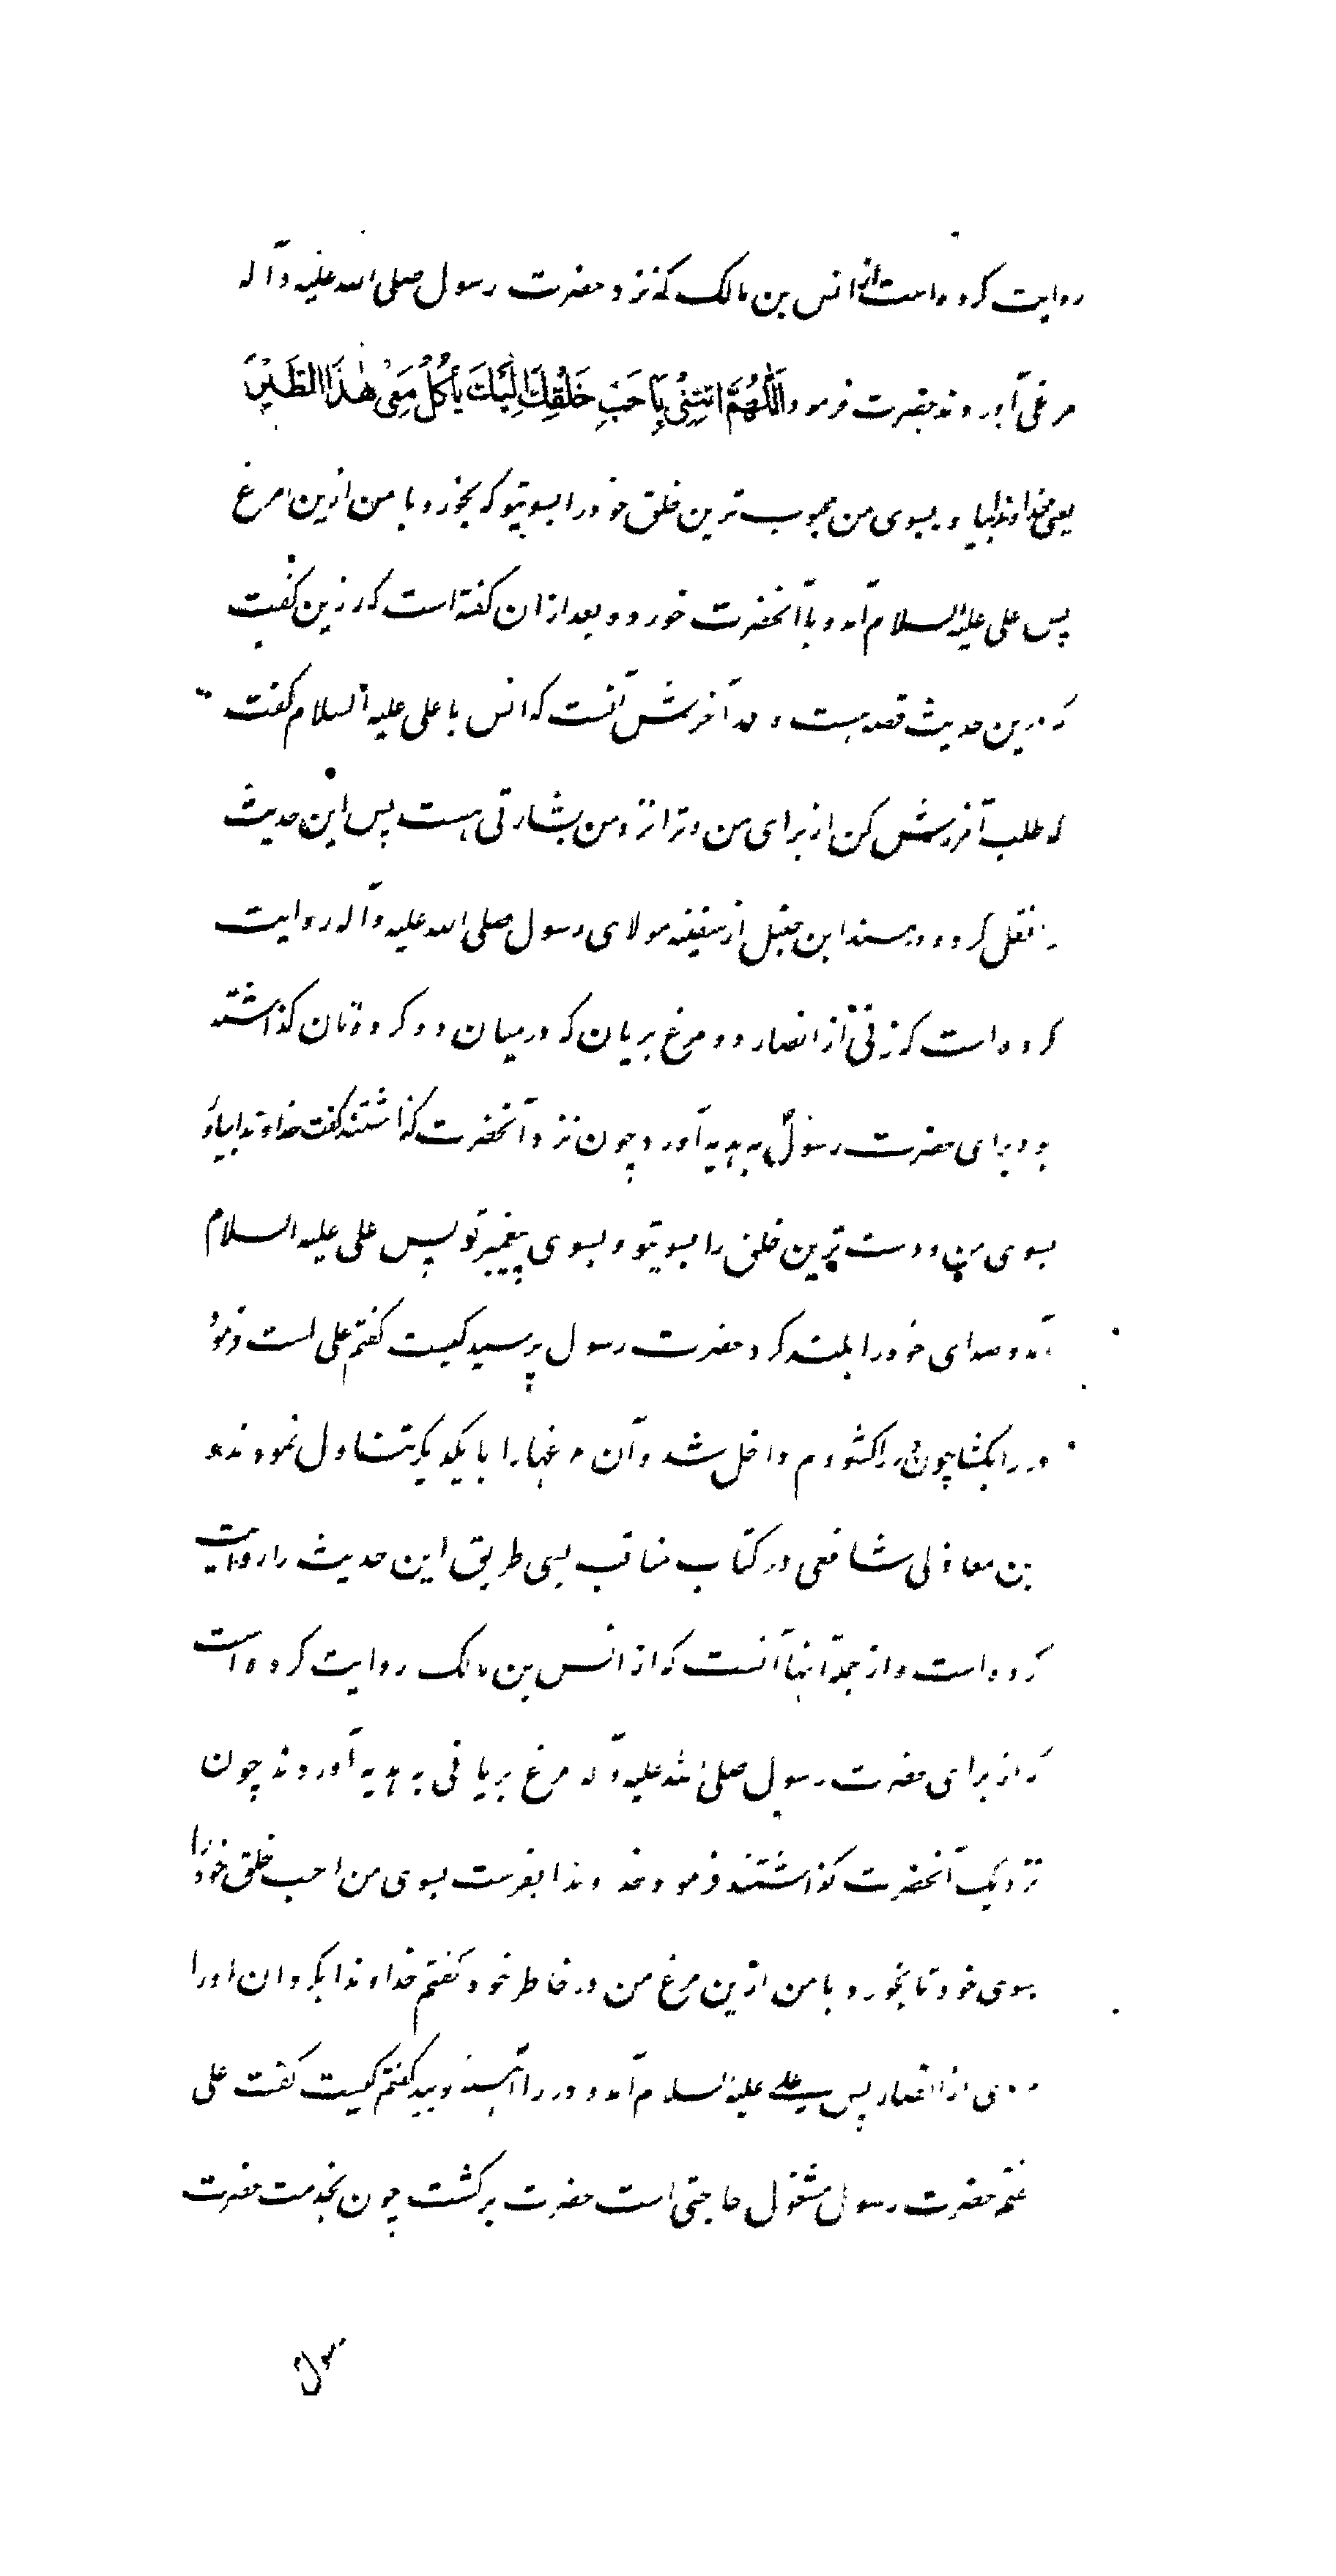 روایت کرده است از انس بن مالک که نزد حضرت رسول صلی الله علیه وآله
مرغی آوردند حضرت فرمود اَللّٰهُمَّ ائتِنِیْ بِاَحَبِّ خَلْقِكَ اِلَیْكَ یَأکُلُ مَعِیْ هٰذَا الطَّیْرَ
یعنی خداوندا بیاور بسوی من محبوب ترین خلق خود را بسویتو که بخورد با من ازین مرغ
پس علی علیه السلام آمد و با آنحضرت خورد و بعد ازان گفته است که رزین گفت
که درین حدیث قصه هست و در آخرش آنست که انس با علی علیه السلام گفت
که طلب آمرزش کن از برای من و ترا نزد من بشارتی هست پس این حدیث
را نقل کرده و در مسند ابن حنبل از سفینه مولای رسول صلی الله علیه وآله روایت
کرده است که زنی از انصار دو مرغ بریان که در میان دو کرده نان گذاشته
بود برای حضرت رسول به هدیه آورد چون نزد آنحضرت گذاشتند گفت خداوندا بیاور
بسوی من دوست ترین خلق را بسویتو و بسوی پیغمبر تو پس علی علیه السلام
آمد و صدای خود را بلند کرد حضرت رسول پرسید کیست گفتم علی است فرمود
در را بکشا چون در را کشودم داخل شد و آن مرغها را با یکدیگر تناول نمودند و
بن مغازلی شافعی در کتاب مناقب بسی طریق این حدیث را روایت
کرده است و از جمله آنها آنست که از انس بن مالک روایت کرده است
که از برای حضرت رسول صلی الله علیه وآله مرغ بریانی به هدیه آوردند چون
نزدیک آنحضرت گذاشتند فرمود خداوندا بفرست بسوی من احب خلق خود را
بسوی خود تا بخورد با من ازین مرغ من در خاطر خود گفتم خداوندا بگردان او را
مردی از انصار پس علی علیه السلام آمد و در را آهسته کوبید گفتم کیست گفت علی
گفتم حضرت رسول مشغول حاجتی است حضرت برگشت چون بخدمت حضرت